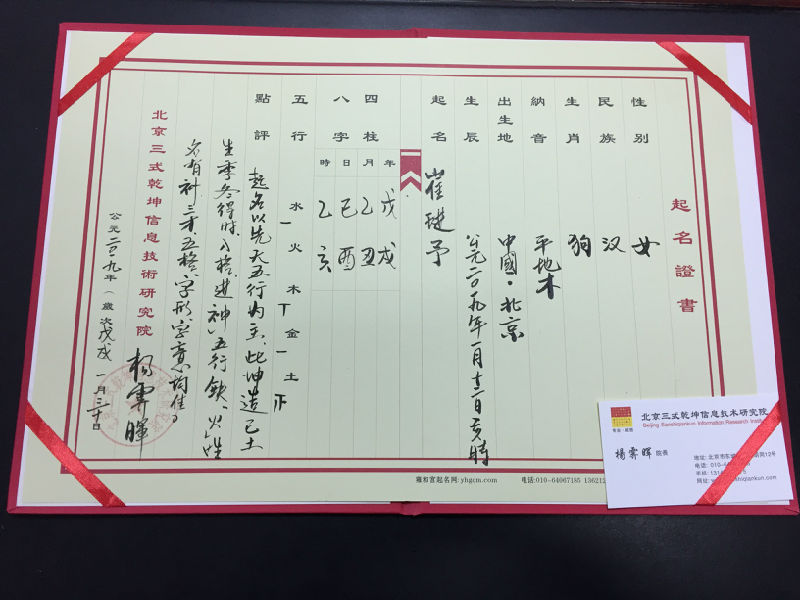 起名證書
性别 女
民族 汉
生肖 狗
納音 平地木
出生地 中國·北京
生辰 公元二〇一九年一月十二日亥時
起名 崔琎予
四柱 年 月 日 時
八字 戊戌 乙丑 己酉 乙亥
五行 水一 火 木丅 金一 土
點評 起名以先天五行为主，此坤造己土
生季冬得时，入格进神，五行缺火，姓
名有补，三才、五格、字形、字意均佳。
北京三式乾坤信息技術研究院
杨霁暉
公元二〇一九年（歲次戊戌）一月三十日
雍和宫起名网:yhgcm.com
电话:010-64067185 136212
北京三式乾坤信息技术研究院
Beijing Sanshiqiankun Information Research Institute
專业·威信
楊霁晖 院長
地址: 北京市东 胡同12号
电话: 010-64
手机: 1314
网址: shiqiankun.com